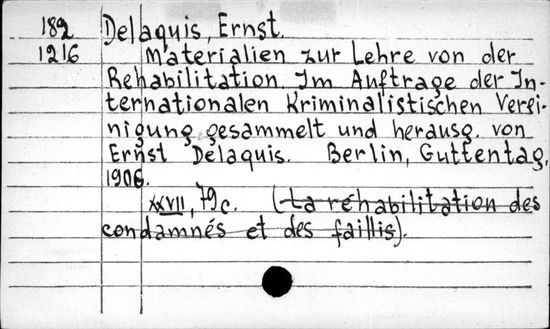 189 Delaquis, Ernst.
1216 Materialien zur Lehre von der
Rehabilitation. Im Auftrage der In-
ternationalen Kriminalistischen Verei-
nigung gesammelt und herausg. von
Ernst Delaquis. Berlin, Guttentag,
1906.
XXVII, 79 c. (La réhabilitation des
condamnés et des faillis).